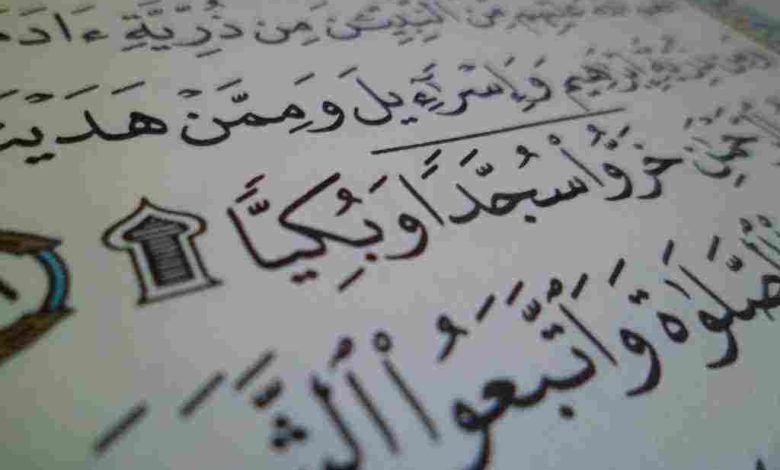 عَلَيْهِم مِّنَ ٱلنَّبِيِّـۧنَ مِن ذُرِّيَّةِ ءَادَمَ
إِبْرَٰهِيمَ وَإِسْرَٰٓءِيلَ وَمِمَّنْ هَدَيْنَا
خَرُّوا۟ سُجَّدًا وَبُكِيًّا ۩
ٱلصَّلَوٰةَ وَٱتَّبَعُوا۟ ٱلشَّ